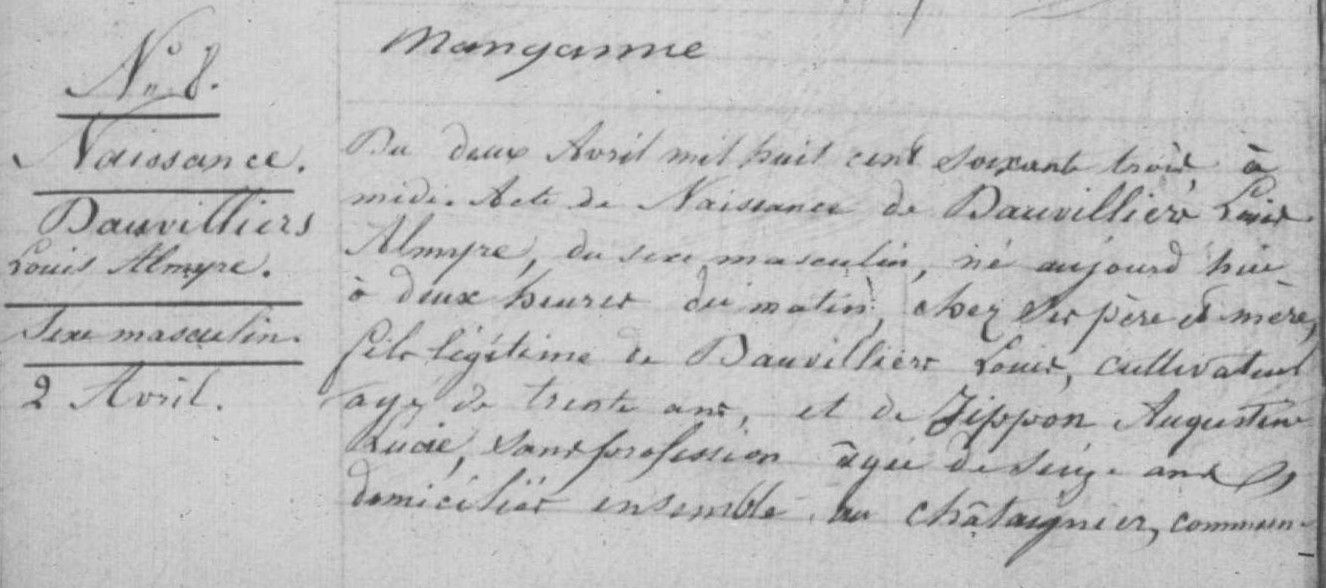 N° 8.
Naissance.
Dauvilliers
Louis Almyre.
Sexe masculin.
2 Avril.
Du deux Avril mil huit cent soixante trois à
midi. Acte de Naissance de Dauvilliers Louis
Almyre, du sexe masculin, né aujourd'hui
à deux heures du matin, chez ses père et mère,
fils légitime de Dauvilliers Louis, cultivateur
agé de trente ans, et de Zippon Augustine
Lucie, sans profession âgée de seize ans
domiciliés ensemble au châtaignier, commun-